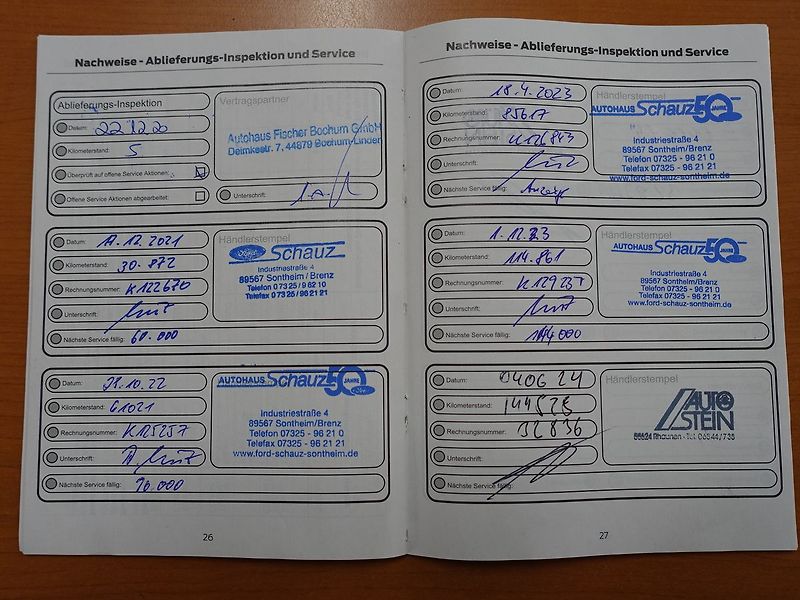 Nachweise - Ablieferungs-Inspektion und Service
Ablieferungs-Inspektion
Datum: 22.12.20
Kilometerstand: 5
Überprüft auf offene Service Aktionen:
Offene Service Aktionen abgearbeitet:
Vertragspartner
Autohaus Fischer Bochum GmbH
Deimkestr. 7, 44879 Bochum-Linden
Unterschrift:
Datum: 17.12.2021
Kilometerstand: 30.872
Rechnungsnummer: K122670
Unterschrift:
Nächste Service fällig: 60.000
Händlerstempel
Ford Schauz
Industriestraße 4
89567 Sontheim/Brenz
Telefon 07325/9 62 10
Telefax 07325/96 21 21
Datum: 10.22
Kilometerstand: 61021
Rechnungsnummer: K125257
Unterschrift:
Nächste Service fällig: 90.000
AUTOHAUS Schauz 50 JAHRE
Industriestraße 4
89567 Sontheim/Brenz
Telefon 07325 - 96 21 0
Telefax 07325 - 96 21 21
www.ford-schauz-sontheim.de
26
Nachweise - Ablieferungs-Inspektion und Service
Datum: 18.4.2023
Kilometerstand: 85617
Rechnungsnummer: K126843
Unterschrift:
Nächste Service fällig: Anzeige
Händlerstempel
AUTOHAUS Schauz 50 JAHRE
Industriestraße 4
89567 Sontheim/Brenz
Telefon 07325 - 96 21 0
Telefax 07325 - 96 21 21
www.ford-schauz-sontheim.de
Datum: 1.12.23
Kilometerstand: 114.861
Rechnungsnummer:
Unterschrift:
Nächste Service fällig: 144000
Händlerstempel
AUTOHAUS Schauz 50 JAHRE
Industriestraße 4
89567 Sontheim/Brenz
Telefon 07325 - 96 21 0
Telefax 07325 - 96 21 21
www.ford-schauz-sontheim.de
Datum: 040624
Kilometerstand: 144528
Rechnungsnummer: 32836
Unterschrift:
Nächste Service fällig:
Händlerstempel
AUTO STEIN
55624 Rhaunen - Tel. 06544/735
27